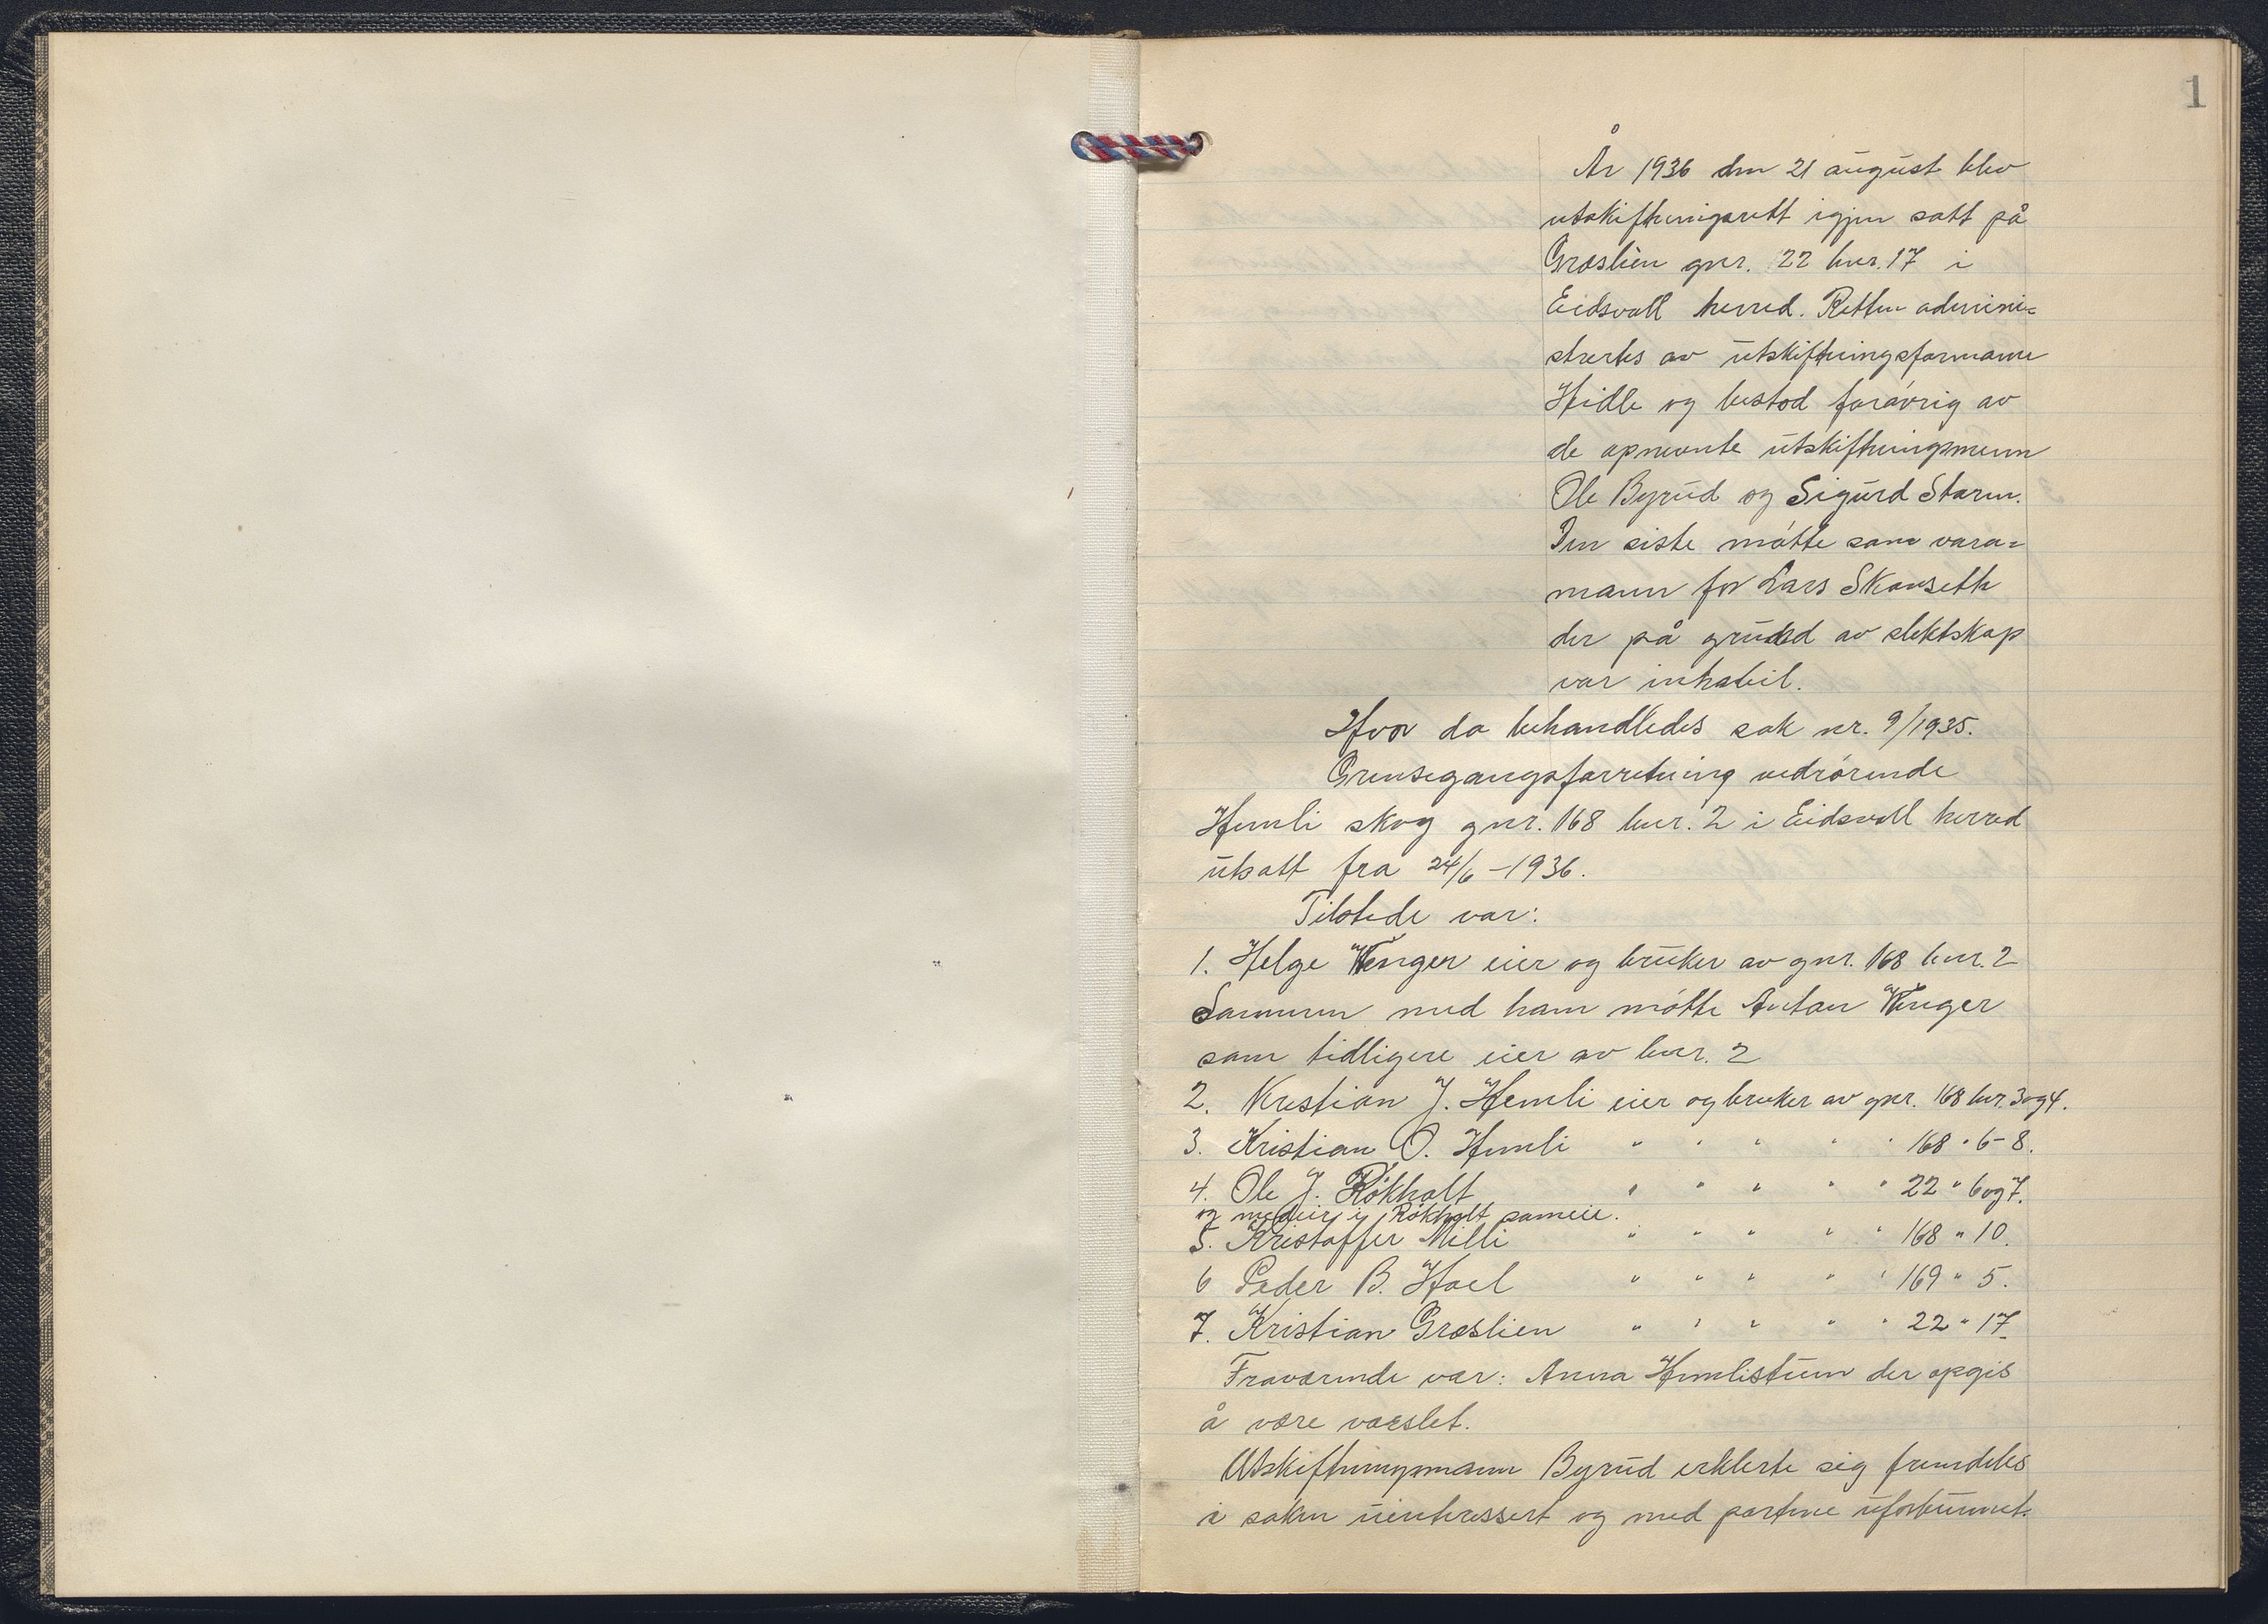 1
År 1936 den 21 august blev
utskiftningsrett igjen satt på
Græslien gnr. 22 bnr. 17 i
Eidsvoll herred. Retten admini=
strertes av utskiftningsformann
Hidle og bestod forøvrig av
de opnevnte utskiftningsmenn
Ole Byrud og Sigurd Storm.
Den siste møtte som vara=
mann for Lars Skauseth
der på grund av slektskap
var inhabil.
Hvor da behandledes sak nr. 9/1935.
Grensegangsforretning vedrørende
Hemli skog gnr. 168 bnr. 2 i Eidsvoll herred
utsatt fra 24/6 - 1936.
Tilstede var:
1. Helge Wenger eier og bruker av gnr. 168 bnr. 2
Sammen med ham møtte Anton Wenger
som tidligere eier av bnr. 2
2. Kristian J. Hemli eier og bruker av gnr. 168 bnr. 3 og 4.
3. Kristian O. Hemli " " " " " 168 " 6-8.
4. Ole J. Røkholt " " " " " 22 " 6 og 7.
og medeier i Røkholt sameie.
5. Kristoffer Milli " " " " " 168 " 10.
6 Peder B. Hoel " " " " " 169 " 5.
7. Kristian Græslien " " " " " 22 " 17
Fraværende var: Anna Hemlistuen der opgis
å være varslet.
Utskiftningsmann Byrud erklerte sig fremdeles
i saken uinteressert og med partene uforbunnet.